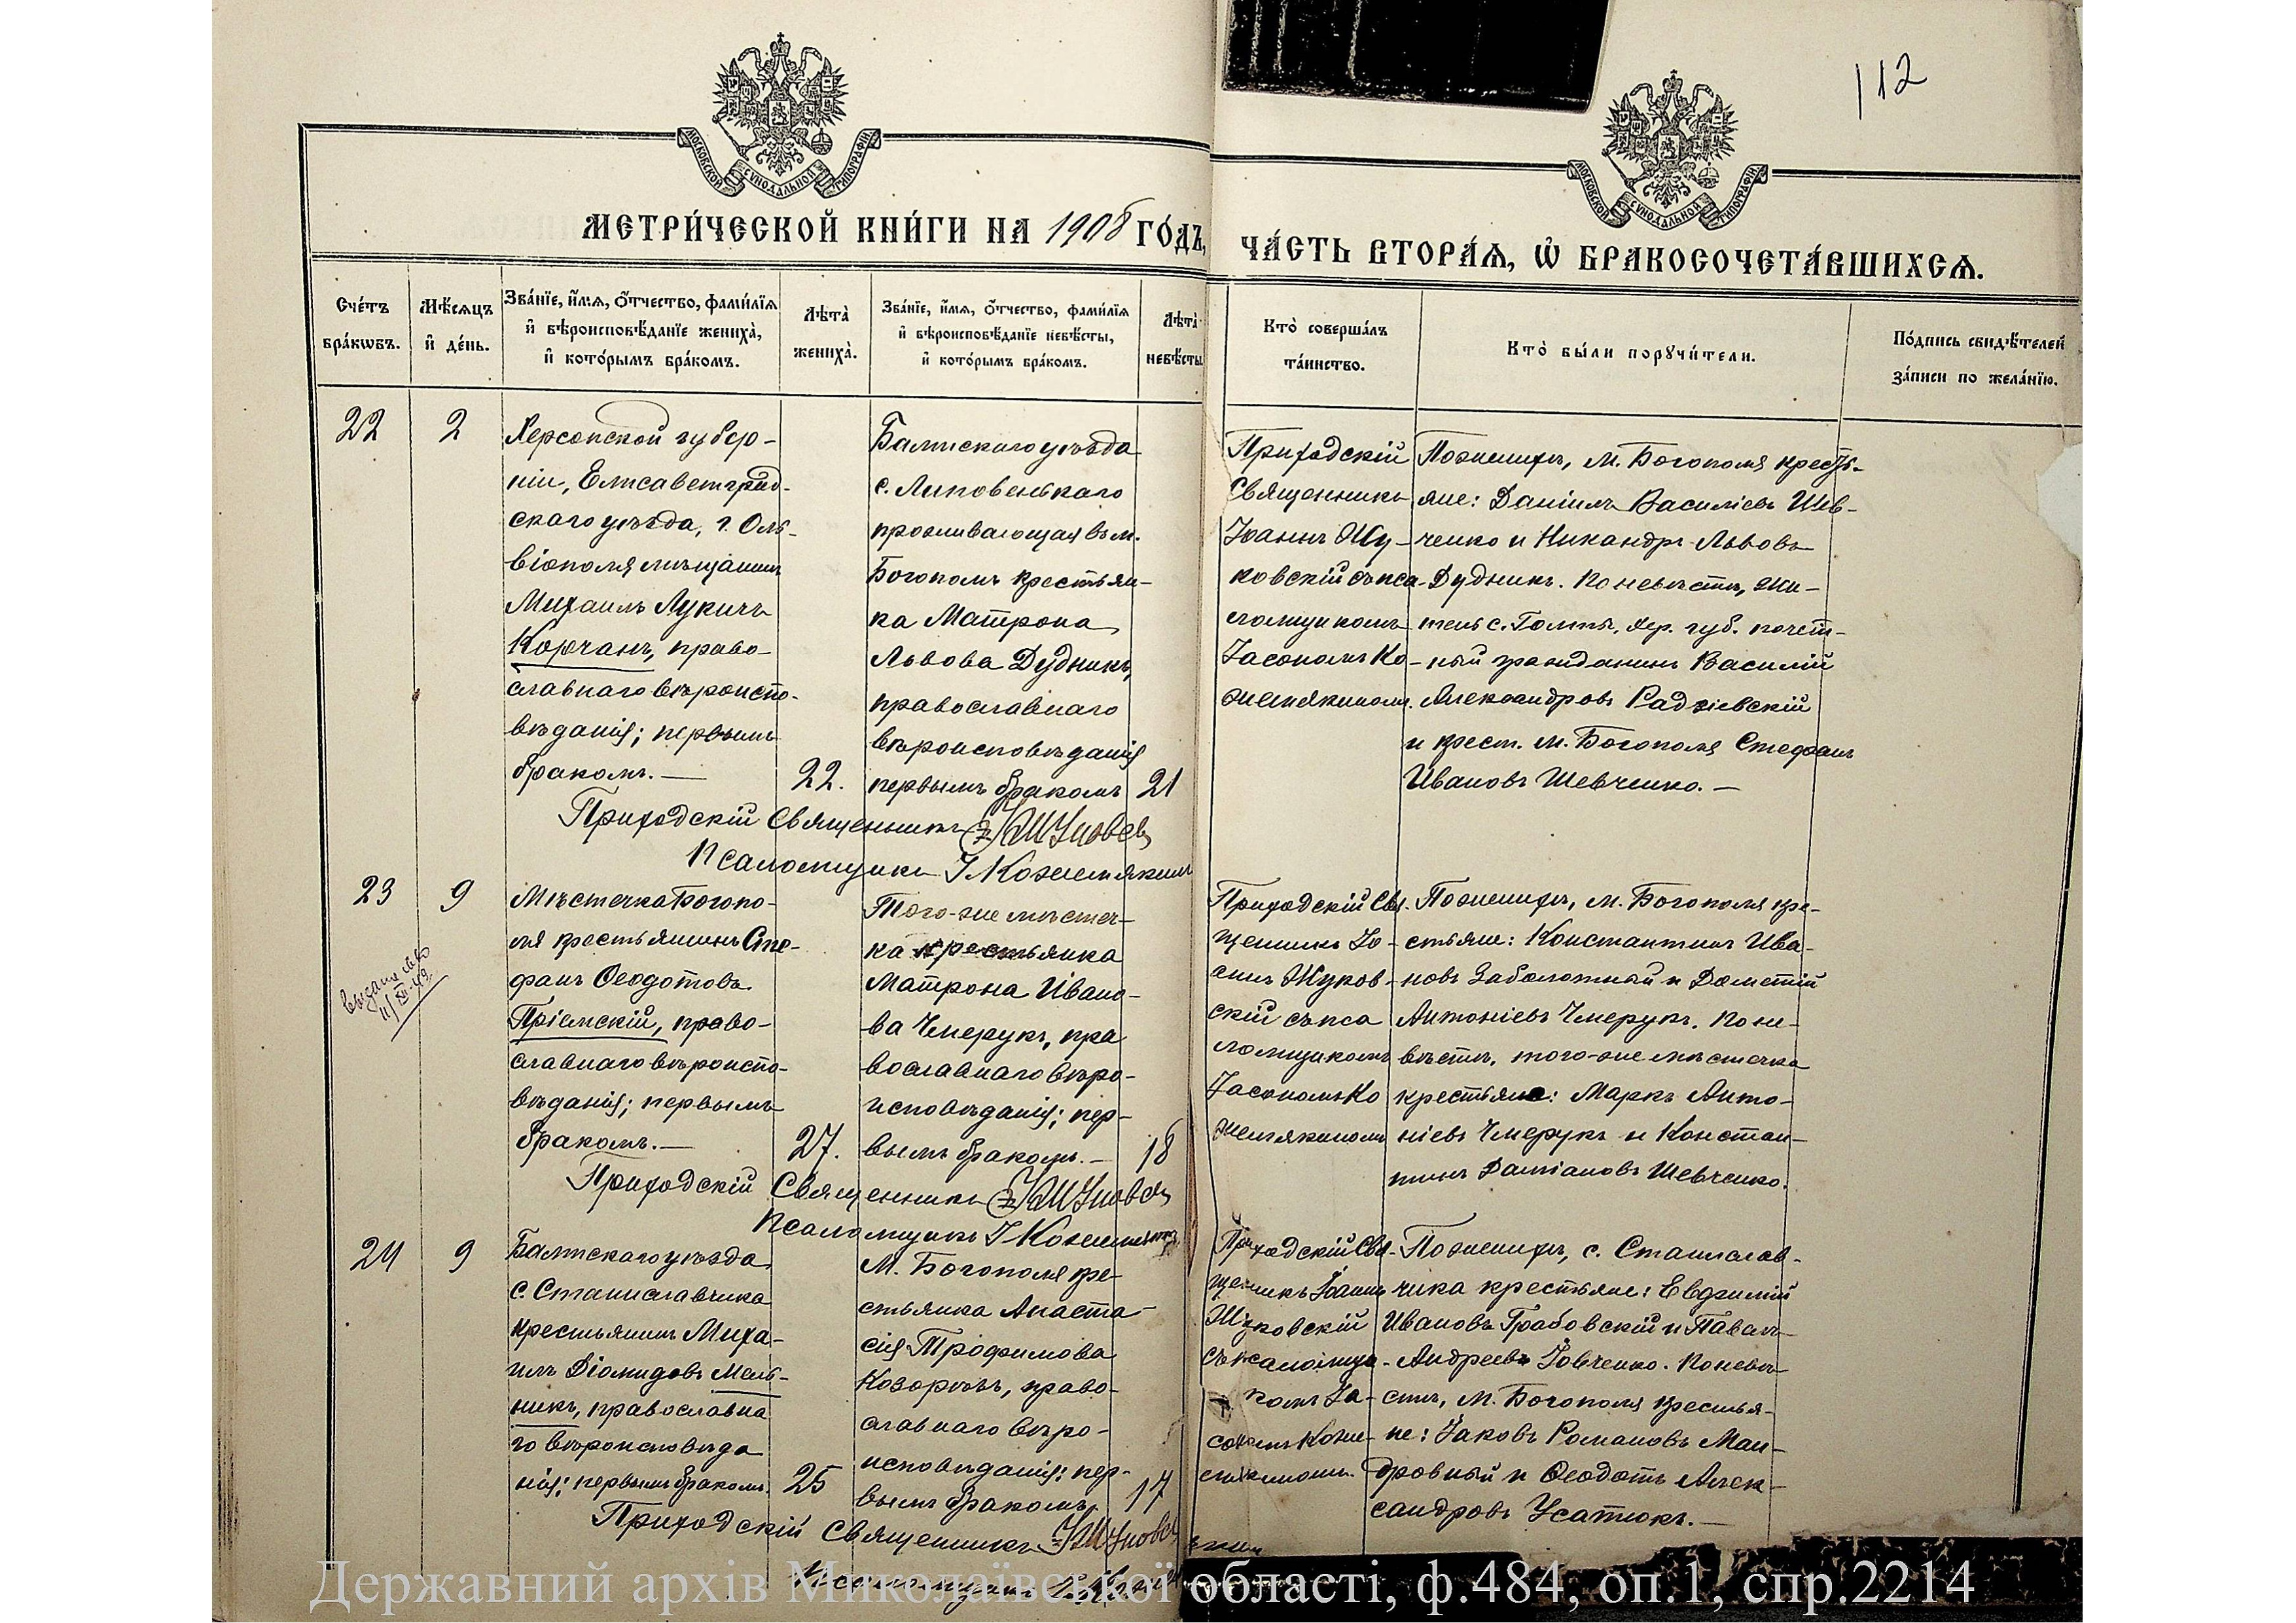 112
МОСКОВСКОЙ СѴНОДАЛЬНОЙ ТИПОГРАФІИ
МОСКОВСКОЙ СѴНОДАЛЬНОЙ ТИПОГРАФІИ
МЕТРИ́ЧЕСКОЙ КНИ́ГИ НА 1908 ГО́ДЪ,
ЧА́СТЬ ВТОРА́Ѧ, Ѡ҆ БРАКОСОЧЕТА́ВШИХСѦ.
Сче́тъ
бра́кѡвъ.
Мѣ́сѧцъ
и҆ де́нь.
Зва́нїе, и҆́мѧ, ѻ҆́тчество, фами́лїѧ
и҆ вѣроисповѣ́данїе жениха̀,
и҆ кото́рымъ бра́комъ.
Лѣта̀
жениха̀.
Зва́нїе, и҆́мѧ, ѻ҆́тчество, фами́лїѧ
и҆ вѣроисповѣ́данїе невѣ́сты,
и҆ кото́рымъ бра́комъ.
Лѣта̀
невѣ́сты
Кто̀ соверша́лъ
та́инство.
Кто̀ бы́ли порꙋчи́тели.
По́дпись свидѣ́телей
за́писи по жела́нїю.
22
2
Херсонской губер-
ніи, Елисаветград-
скаго уѣзда, г. Оль-
віополя мѣщанинъ
Михаилъ Лукичъ
Корчанъ, право-
славнаго вѣроиспо-
вѣданія; первымъ
бракомъ. —
22.
Балтскаго уѣзда
с. Липовенькаго
проживающая въ м.
Богополѣ крестьян-
ка Матрона
Львова Дудникъ,
православнаго
вѣроисповѣданія
первымъ бракомъ
21
Приходскій
Священникъ
Іоаннъ Жу-
ковскій съ пса-
ломщикомъ
Іасономъ Ко-
жемякинымъ.
По женихѣ, м. Богополя кресть-
яне: Даніилъ Василіевъ Шев-
ченко и Никандръ Львовъ
Дудникъ. По невѣстѣ, жи-
тель с. Голты, Хер. губ. почет-
ный гражданинъ Василій
Александровъ Радзіевскій
и крест. м. Богополя Стефанъ
Ивановъ Шевченко. —
Приходскій Священникъ
Псаломщикъ І Кожемякинъ
23
9
Мѣстечка Богопо-
ля крестьянинъ Сте-
фанъ Ѳеодотовъ
Пріемскій, право-
славнаго вѣроиспо-
вѣданія; первымъ
бракомъ. —
27.
Того-же мѣстеч-
ка крестьянка
Матрона Ивано-
ва Чмерукъ, пра
вославнаго вѣро-
исповѣданія; пер-
вымъ бракомъ. —
18
Приходскій Свя-
щенникъ Іо-
аннъ Жуков-
скій съ пса
ломщикомъ
Іасономъ Ко
жемякиномъ
По женихѣ, м. Богополя кре-
стьяне: Константинъ Ива-
новъ Заболотный и Дометій
Антоніевъ Чмерукъ. По не-
вѣстѣ, того-же мѣстечка
крестьяне: Маркъ Анто-
ніевъ Чмерукъ и Констан-
тинъ Даміановъ Шевченко.
Приходскій Священникъ
Псаломщикъ І Кожемяк
24
9
Балтскаго уѣзда
с. Станиславчика
крестьянинъ Миха-
илъ Діомидовъ Мель-
никъ, православна
го вѣроисповѣда
нія; первымъ бракомъ.
25
М. Богополя кре-
стьянка Анаста-
сія Трофимова
Козорѣзъ, право-
славнаго вѣро-
исповѣданія; пер-
вымъ бракомъ,
17
Приходскій Свя-
щенникъ Іоаннъ
Жуковскій
съ псаломщи-
комъ Іа-
сономъ Коже-
мякиномъ.
По женихѣ, с. Станислав-
чика крестьяне: Евѳимій
Ивановъ Грабовскій и Павелъ
Андреевъ Іовченко. По невѣ-
стѣ, м. Богополя крестья-
не: Іаковъ Романовъ Ман-
дровный и Ѳеодотъ Алек-
сандровъ Усатюкъ. —
Приходскій Священникъ
Псаломщикъ
Державний архів Миколаївської області, ф.484, оп.1, спр.2214